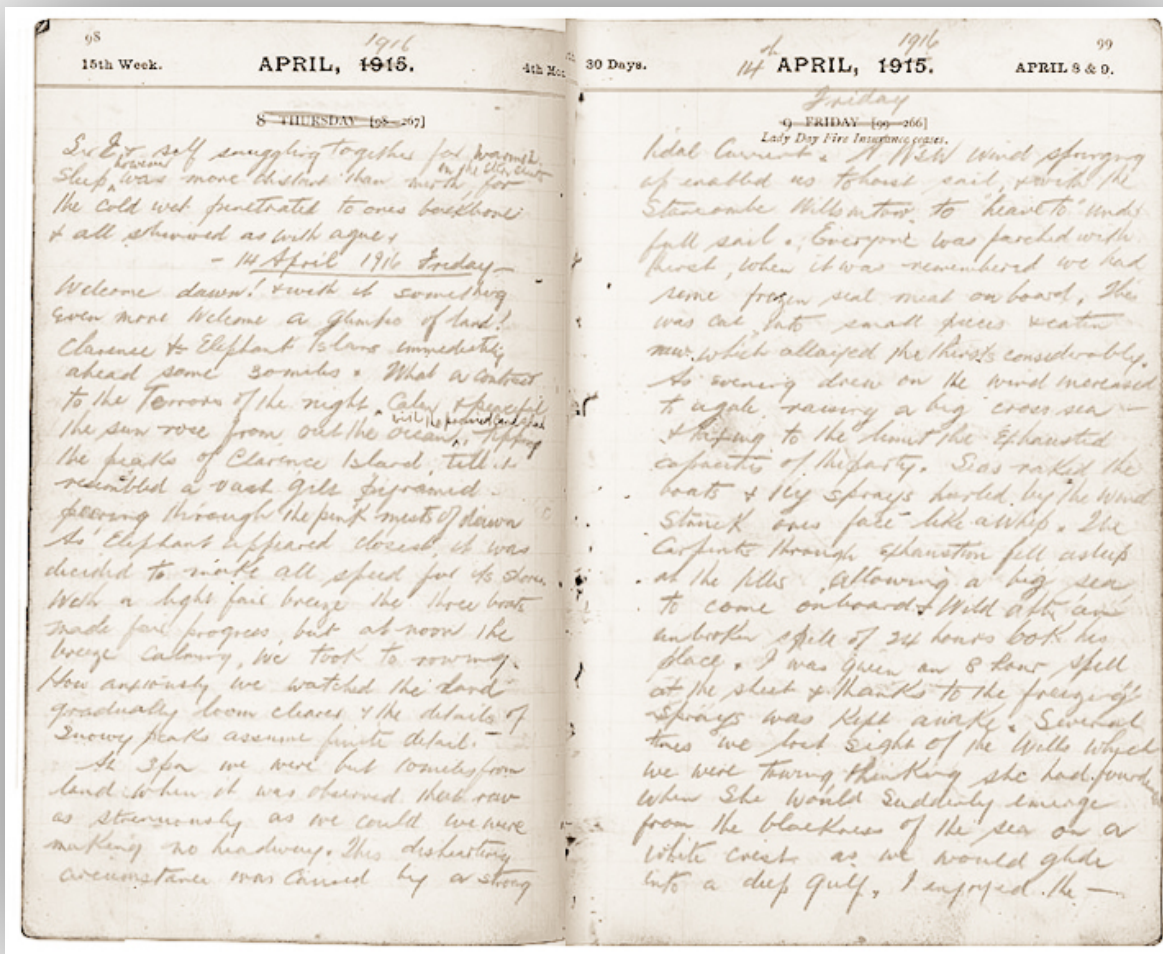 98
1916
15th Week. APRIL, 1915. 4th Mo
8 THURSDAY [98-267]
Sir E & self snuggling together for warmth.
on the
Sleep, however was more distant than mirth, for
the cold wet penetrated to ones backbone
& all shivered as with ague.
- 14 April 1916 Friday -
Welcome dawn! & with it something
even more welcome a glimpse of land!
Clarence & Elephant Islans immediately
ahead some 30 miles. What a contrast
to the Terrors of the night. Calm & peaceful
the sun rose from out the ocean, tipping
with the
the peaks of Clarence Island, till it
resembled a vast gilt pyramid
peering through the pink mists of dawn
As Elephant appeared closest, it was
decided to make all speed for its shores
With a light fair breeze the three boats
made fair progress, but at noon the
breeze calming, we took to rowing.
How anxiously we watched the land
gradually loom clearer & the details of
snowy peaks assume finite detail. -
At 3 pm we were but 10 miles from
land when it was observed that row
as strenuously as we could we were
making no headway. This disheartening
circumstance was caused by a strong
99
1916
30 Days. 14 of APRIL, 1915. APRIL 8 & 9.
Friday
9 FRIDAY [99-266]
Lady Day Fire Insurance ceases.
tidal Current. A WSW wind springing
up enabled us to hoist sail, & with the
Stancombe Wills in tow, to "heave to" under
full sail. Everyone was parched with
thirst, when it was remembered we had
some frozen seal meat on board. This
was cut into small pieces & eaten
raw, which allayed the thirsts considerably.
As evening drew on the wind increased
to a gale, raising a big cross sea -
& taxing to the limit the exhausted
capacities of the party. Seas raked the
boats & icy sprays hurled by the wind
struck ones face like a whip. The
Carpenter through exhaustion fell asleep
at the tiller, allowing a big sea
to come onboard & Wild after an
unbroken spell of 24 hours took his
place. I was given an 8 hour spell
at the sheet & thanks to the freezing
sprays was kept awake. Several
times we lost sight of the Wills which
we were towing thinking she had foundered
when she would suddenly emerge
from the blackness of the sea on a
white crest as we would glide
into a deep gulf. I enjoyed the -